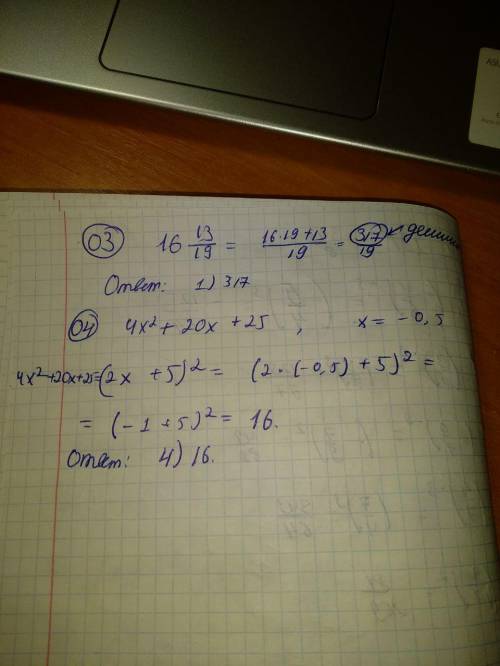 03 16 13/19 = (16·19+13)/19 = 317/19
Ответ: 1) 317
04 4x² + 20x + 25 , x = -0,5
4x²+20x+25=(2x + 5)² = (2·(-0,5) + 5)² =
= (-1 + 5)² = 16.
Ответ: 4) 16.